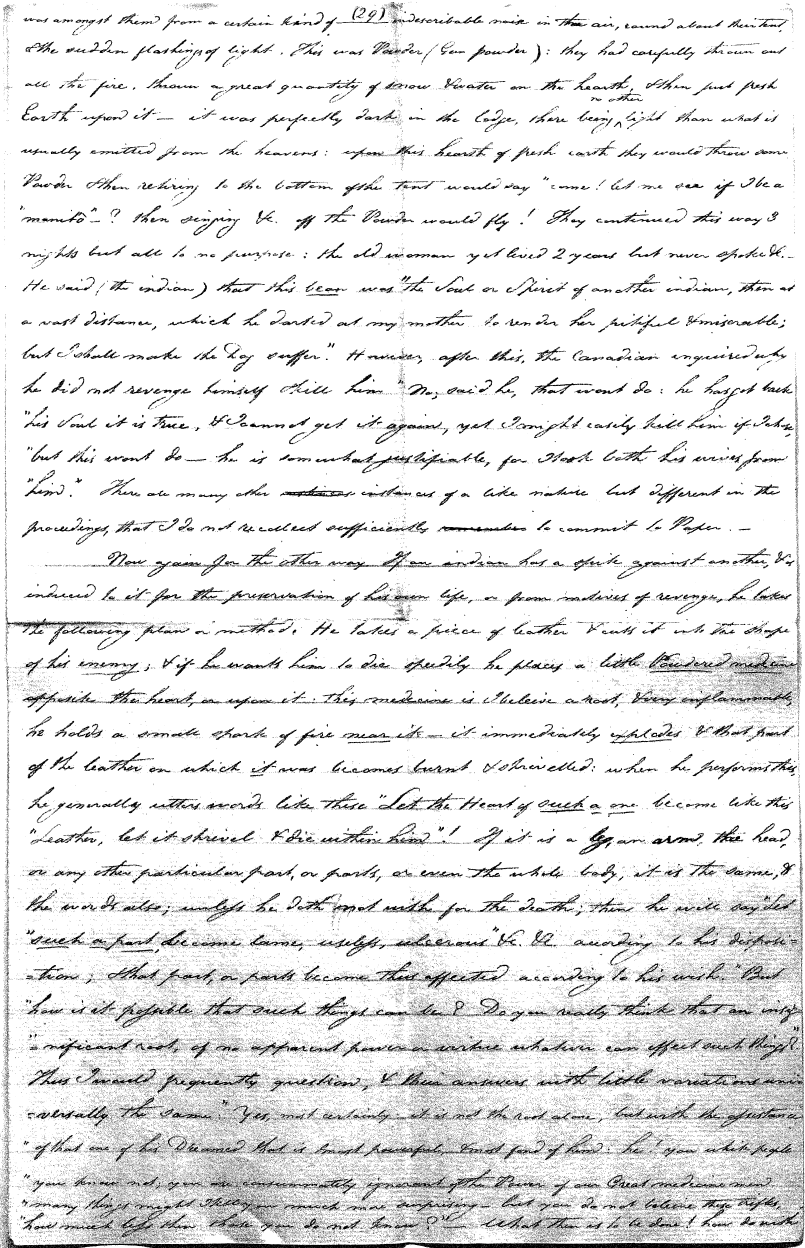 (29)
was amongst them from a certain kind of indescribable noise in the air, round about their tent,
& the sudden flashings of light. This was Powder (Gun powder): they had carefully thrown out
all the fire, thrown a great quantity of snow & water on the hearth, & then put fresh
Earth upon it — it was perfectly dark in the lodge, there being no other light than what is
usually emitted from the heavens: upon this hearth of fresh earth they would throw some
Powder & then retiring to the bottom of the tent would say "come! let me see if I be a
"manito" — ? then singing &c. off the Powder would fly! They continued this way 3
nights but all to no purpose: the old woman yet lived 2 years but never spoke &c. —
He said (the indian) that this bean was "the Soul or Spirit of another indian, then at
a vast distance, which he darted at my mother to render her pitiful & miserable;
but I shall make the Dog suffer." However, after this, the Canadian inquired why
he did not revenge himself & kill him "No, said he, that wont do: he has got back
"his Soul it is true, & I cannot get it again, yet I might easily kill him if I chose,
"but this wont do — he is somewhat justifiable, for I took both his wives from
"him." There are many other instances of a like nature but different in the
proceedings, that I do not recollect sufficiently to commit to Paper. —
Now again for the other way If an indian has a spite against another, & is
induced to it for the preservation of his own life, or from motives of revenge, he takes
the following plan or method. He takes a piece of leather & cuts it into the shape
of his enemy; & if he wants him to die speedily he places a little Powdered medicine
opposite the heart, or upon it: this medicine is I beleive a root, & very inflammable,
he holds a small spark of fire near it — it immediately explodes & that part
of the leather on which it was becomes burnt & shrivelled: when he performs this
he generally utters words like these "Let the Heart of such a one become like this
"Leather, let it shrivel & die within him"! If it is a leg, an arm, the head,
or any other particular part, or parts, or even the whole body, it is the same, &
the words also; unless he doth not wish for the death; then he will say "Let
"such a part become lame, useless, ulcerous" &c. &c. according to his disposi=
=tion; & that part, or parts become thus affected according to his wish. "But
"how is it possible that such things can be? Do you really think that an insig
"=nificant root, of no apparent power or virtue whatever can effect such things?"
Thus I would frequently question, & their answers with little variations uni
=versally the same. "Yes, most certainly — it is not the root alone, but with the assistance
"of that one of his Dreamed that is most powerful, & most fond of him: he! you white people
"you know not, you are consummately ignorant of the Power of our Great medicine men
"many things might I tell you much more surprising — but you do not beleive these trifles,
"how much less then those you do not know?" — What then is to be done! how do with